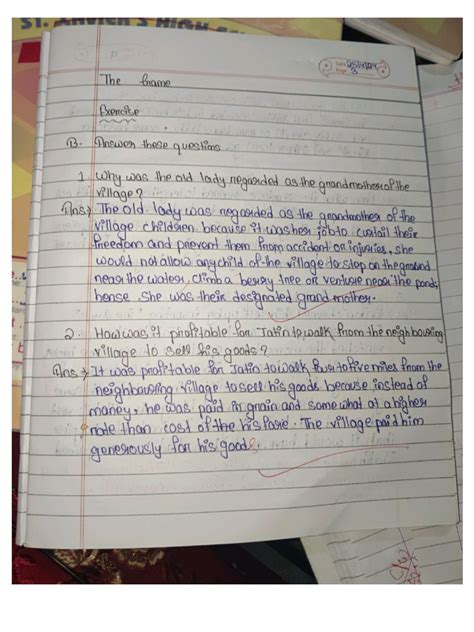 ST. XAVIER'S HIGH
Date
Page 3
The Game
Exercise
B. Answer these questions
1. Why was the old lady regarded as the grandmother of the
village?
Ans→ The old lady was regarded as the grandmother of the
village children because it was her job to curtail their
freedom and prevent them from accident or injuries, she
would not allow any child of the village to step on the ground
near the water, climb a berry tree or venture near the pond,
hense she was their designated grand mother.
2. How was it profitable for Jatin to walk from the neighbouring
village to sell his goods?
Ans→ It was profitable for Jatin to walk four to five miles from the
neighbouring village to sell his goods because instead of
money, he was paid in grain and some what at a higher
rate than cost of the his fare. The village paid him
generously for his goods.